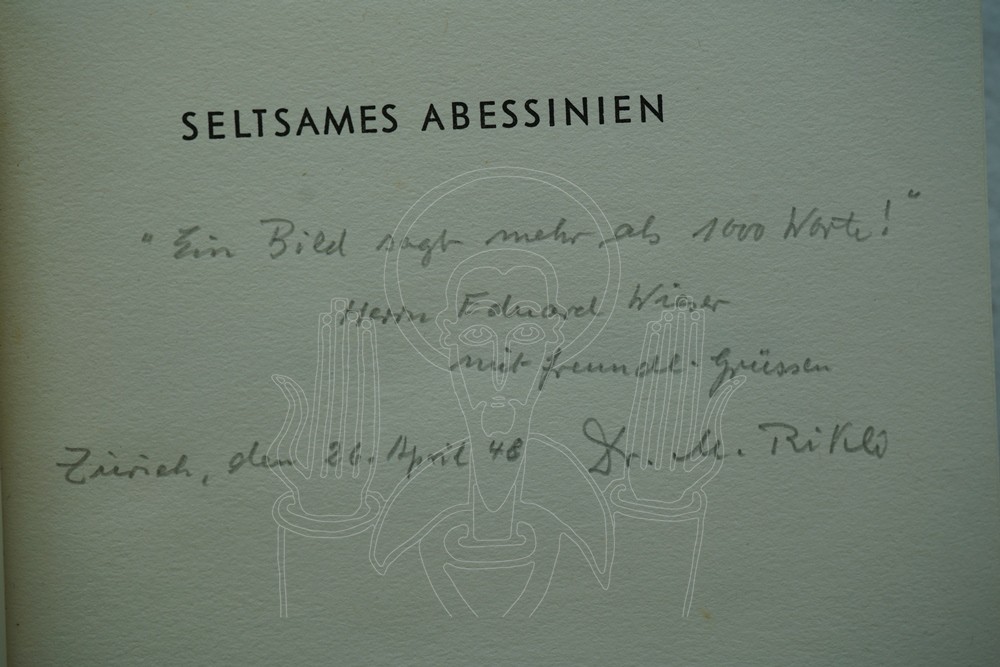 SELTSAMES ABESSINIEN
"Ein Bild sagt mehr als 1000 Worte!"
Herrn Eduard Wieser
mit freundl. Grüssen
Zürich, den 26. April 48 Dr. M. Rikli